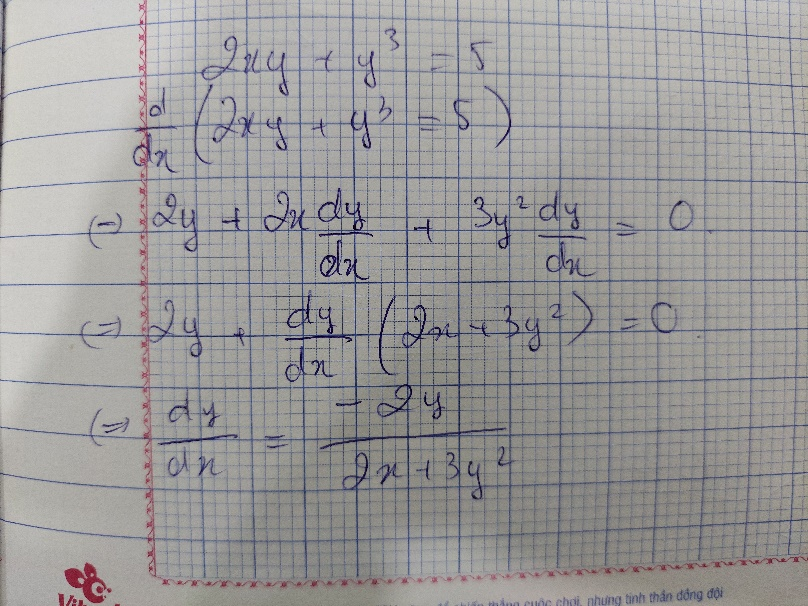 2xy + y³ = 5
d/dx (2xy + y³ = 5)
(=) 2y + 2x dy/dx + 3y² dy/dx = 0.
(=) 2y + dy/dx (2x + 3y²) = 0.
(=) dy/dx = -2y / 2x + 3y²
chiến thắng cuộc chơi, nhưng tinh thần đồng đội